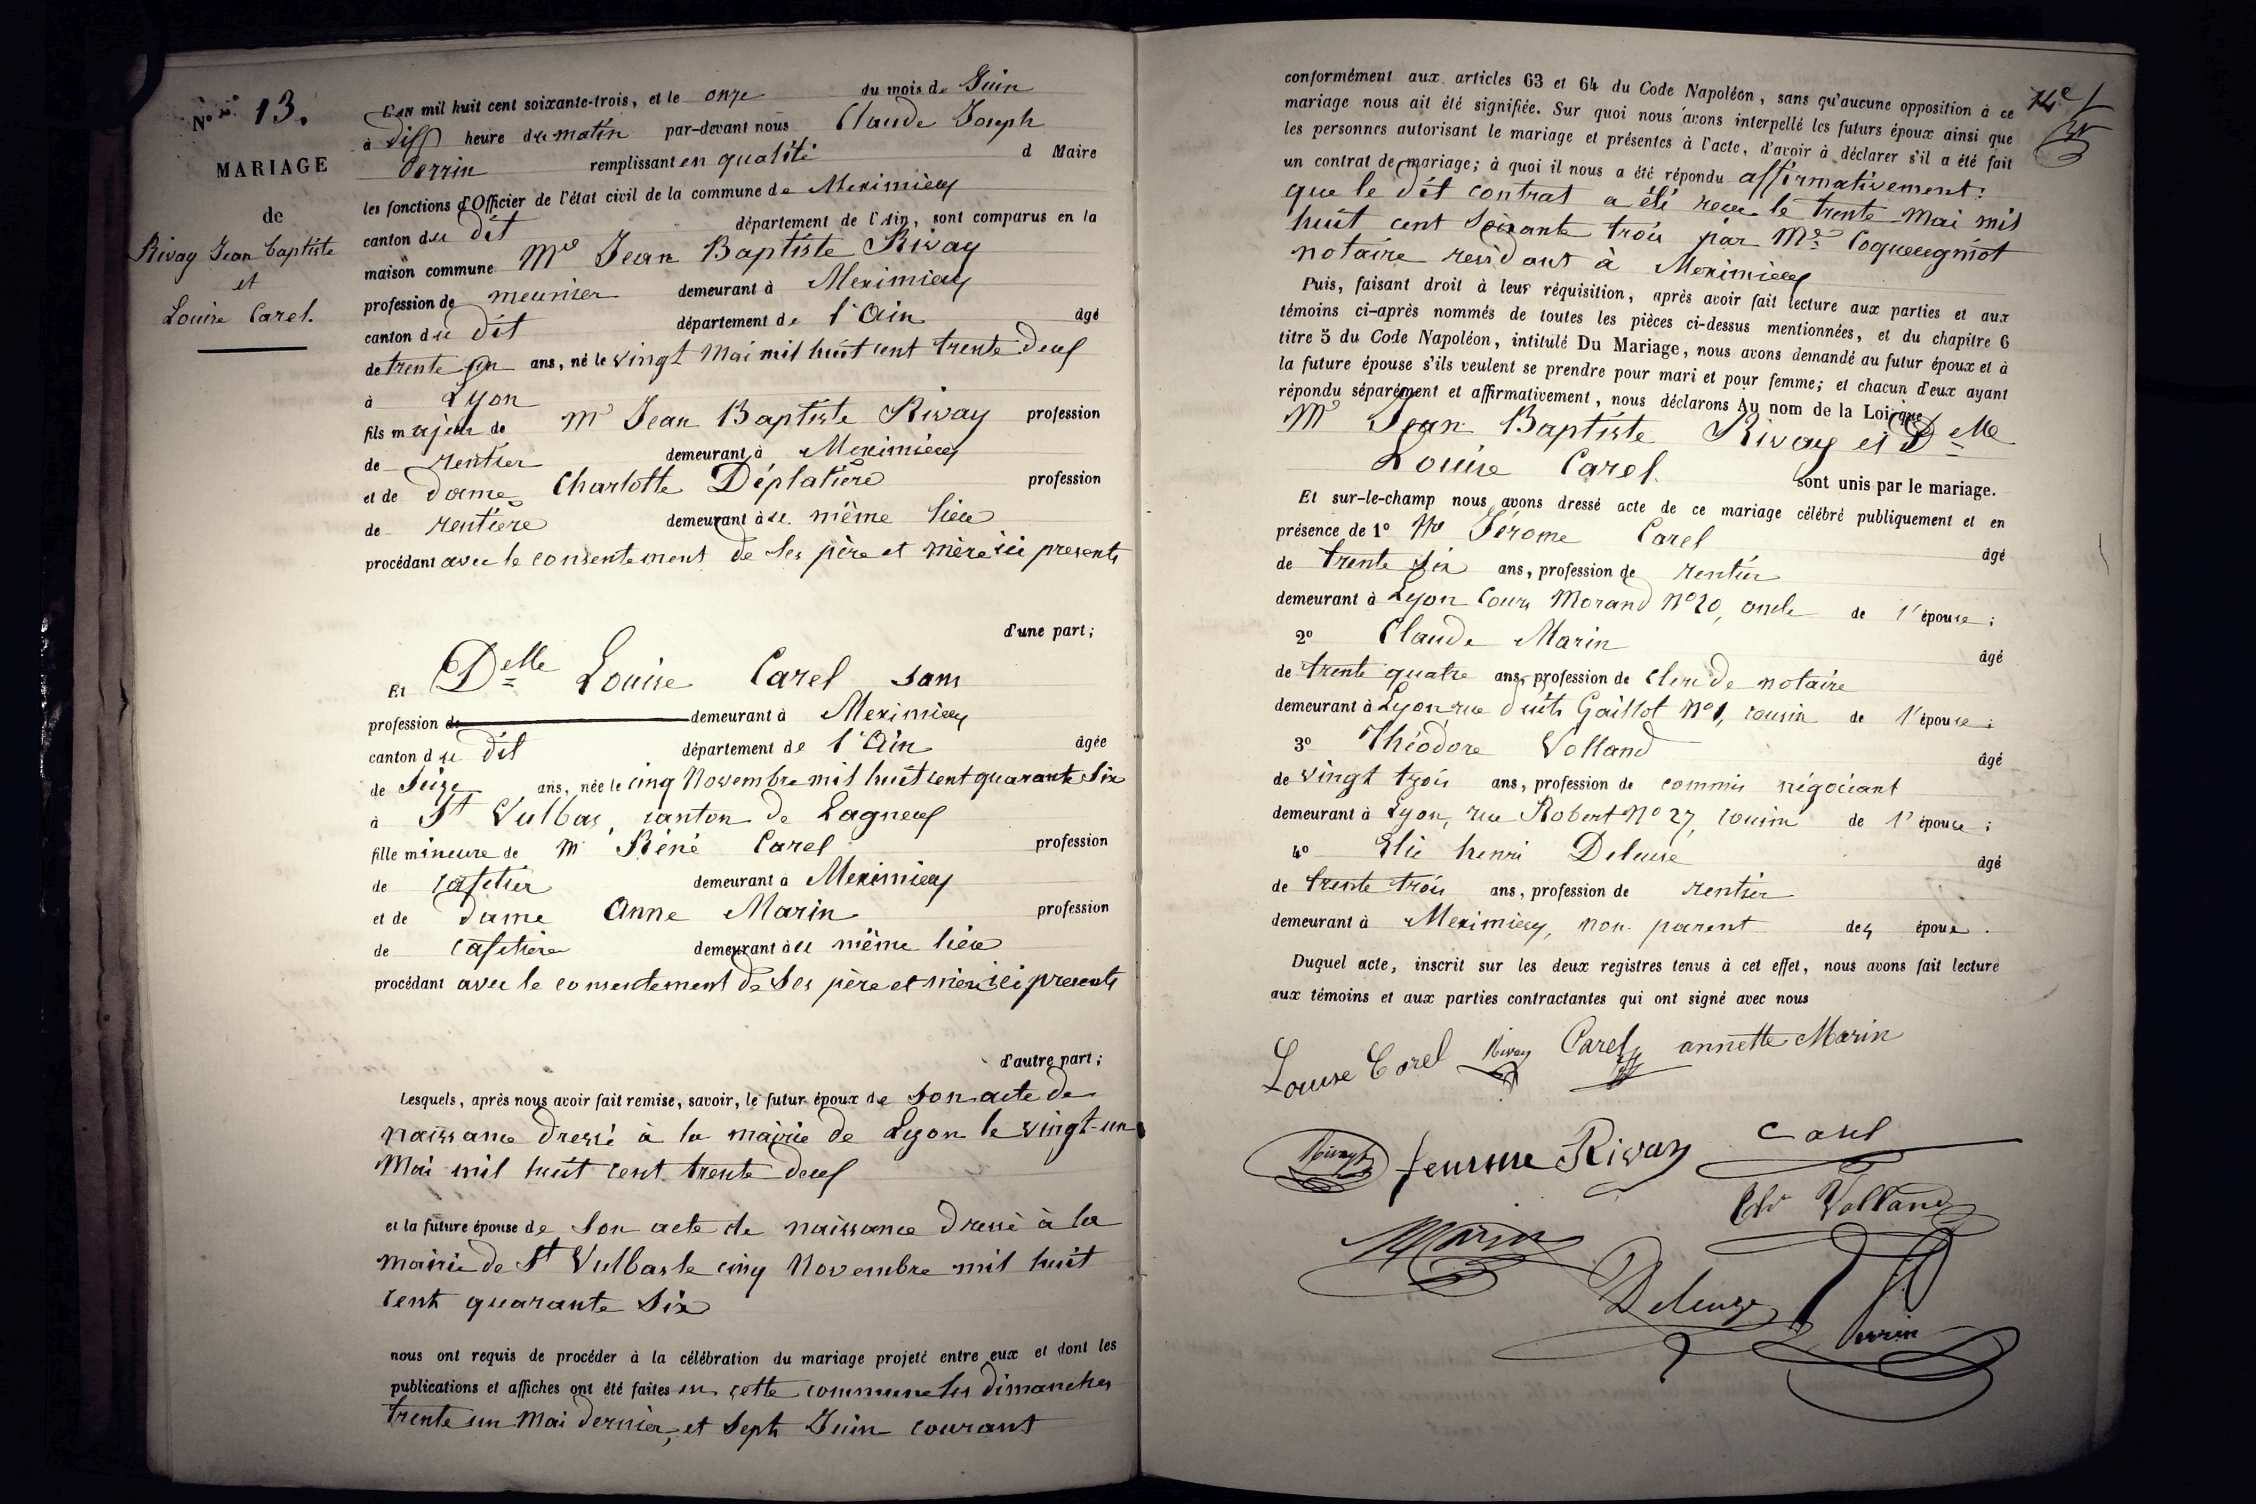 N° 13.
MARIAGE
de
Rivay Jean Baptiste
et
Louise Carel.
L'an mil huit cent soixante-trois, et le onze du mois de Juin
à dix heure du matin par-devant nous Claude Joseph
Perrin remplissant en qualité d Maire
les fonctions d'Officier de l'état civil de la commune de Meximieux
canton du dit département de l'Ain, sont comparus en la
maison commune Mr Jean Baptiste Rivay
profession de meunier demeurant à Meximieux
canton du dit département de l'Ain âgé
de trente un ans, né le vingt Mai mil huit cent trente deux
à Lyon
fils majeur de Mr Jean Baptiste Rivay profession
de rentier demeurant à Meximieux
et de dame Charlotte Déplatière profession
de rentière demeurant à u même lieu
procédant avec le consentement de ses père et mère ici presents
d'une part;
Et Delle Louise Carel sans
profession de demeurant à Meximieux
canton du dit département de l'Ain âgée
de Seize ans, née le cinq Novembre mil huit cent quarante Six
à St Vulbas, canton de Lagneux
fille mineure de Mr Réné Carel profession
de cafetier demeurant à Meximieux
et de dame Anne Marin profession
de cafetière demeurant à u même lieu
procédant avec le consentement de ses père et mère ici presents
d'autre part;
Lesquels, après nous avoir fait remise, savoir, le futur époux de son acte de
naissance dressé à la mairie de Lyon le vingt-un
Mai mil huit cent trente deux
et la future épouse de son acte de naissance dressé à la
mairie de St Vulbas le cinq Novembre mil huit
cent quarante six
nous ont requis de procéder à la célébration du mariage projeté entre eux et dont les
publications et affiches ont été faites en cette commune les dimanches
trente un Mai dernier, et sept Juin courant
14e
conformément aux articles 63 et 64 du Code Napoléon, sans qu'aucune opposition à ce
mariage nous ait été signifiée. Sur quoi nous avons interpellé les futurs époux ainsi que
les personnes autorisant le mariage et présentes à l'acte, d'avoir à déclarer s'il a été fait
un contrat de mariage; à quoi il nous a été répondu affirmativement:
que le dit contrat a été reçu le trente Mai mil
huit cent soixante trois par Me Coqueugniot
notaire residant à Meximieux
Puis, faisant droit à leur réquisition, après avoir fait lecture aux parties et aux
témoins ci-après nommés de toutes les pièces ci-dessus mentionnées, et du chapitre 6
titre 5 du Code Napoléon, intitulé Du Mariage, nous avons demandé au futur époux et à
la future épouse s'ils veulent se prendre pour mari et pour femme; et chacun d'eux ayant
répondu séparément et affirmativement, nous déclarons Au nom de la Loi que
Mr Jean Baptiste Rivay et Delle
Louise Carel. sont unis par le mariage.
Et sur-le-champ nous avons dressé acte de ce mariage célébré publiquement et en
présence de 1° Mr Jérome Carel âgé
de trente six ans, profession de rentier
demeurant à Lyon Cours Morand N° 20, oncle de l'épouse;
2° Claude Marin âgé
de trente quatre ans, profession de clerc de notaire
demeurant à Lyon rue Puits Gaillot N° 1, cousin de l'épouse;
3° Théodore Volland âgé
de vingt trois ans, profession de commis négociant
demeurant à Lyon, rue Robert N° 27, cousin de l'épouse;
4° Elie henri Deleuse âgé
de trente trois ans, profession de rentier
demeurant à Meximieux, non parent des époux.
Duquel acte, inscrit sur les deux registres tenus à cet effet, nous avons fait lecture
aux témoins et aux parties contractantes qui ont signé avec nous
Louise Carel Rivay Carel annette Marin
Rivay femme Rivay Carel
Marin Volland
Deleuze Perrin